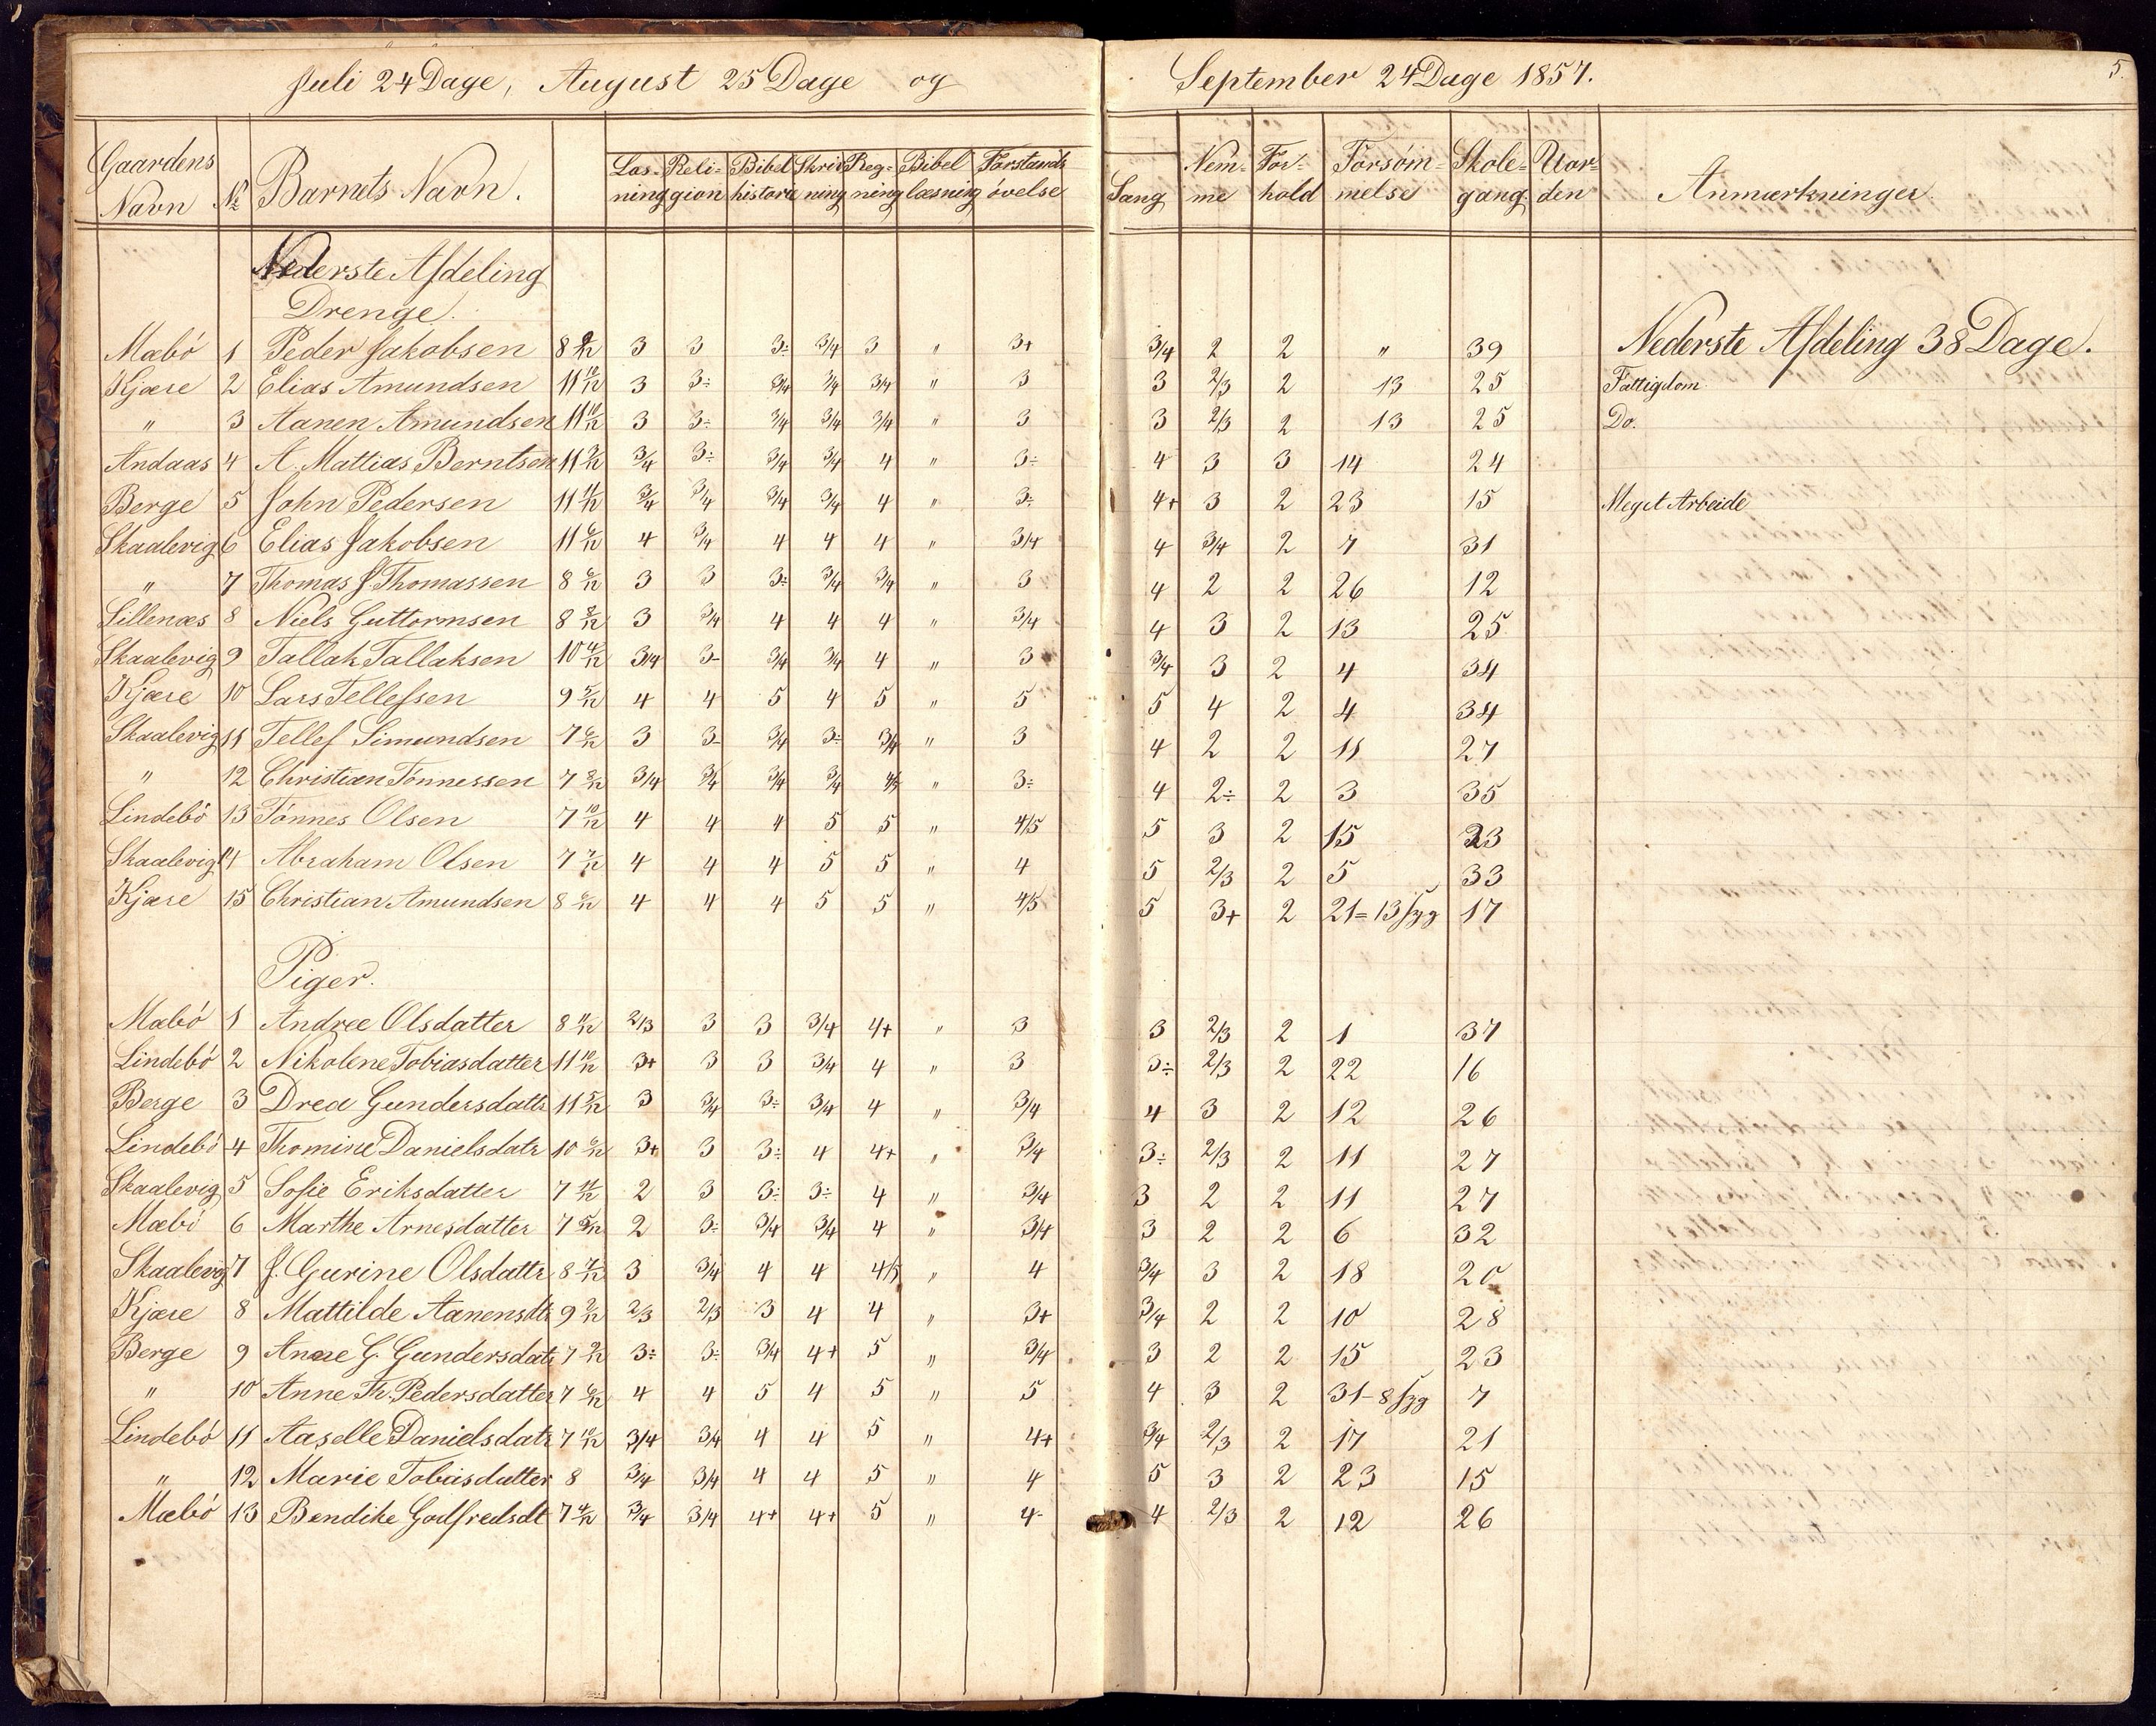 Juli 24 Dage, August 25 Dage og September 24 Dage 1857. 5.
Gaardens Navn № Barnets Navn. Læsning Religion Bibelhistorie Skrivning Regning Bibellæsning Forstandsøvelse Sang Nemme Forhold Forsømmelse Skolegang Uorden Anmærkninger
Nederste Afdeling
Drenge.
Mæbö 1 Peder Jakobsen 8 3 3 3÷ 3/4 3 " 3+ 3/4 2 2 " 39 Nederste Afdeling 38 Dage.
Kjære 2 Elias Amundsen 11 10/12 3 3÷ 3/4 3/4 3/4 " 3 3 2/3 2 13 25 Fattigdom
" 3 Aanen Amundsen 11 10/12 3 3÷ 3/4 3/4 3/4 " 3 3 2/3 2 13 25 Do.
Andaas 4 A. Mattias Berntsen 11 3/4 3÷ 3/4 3/4 4 " 3÷ 4 3 3 14 24
Berge 5 John Pedersen 11 3/4 3/4 3/4 3/4 4 " 3÷ 4+ 3 2 23 15 Meget Arbeide
Skaalevig 6 Elias Jakobsen 11 6/12 4 3/4 4 4 4 " 3/4 4 3/4 2 7 31
" 7 Thomas J. Thomassen 8 6/12 3 3 3÷ 3/4 3/4 " 3 4 2 2 26 12
Lillenæs 8 Niels Guttormsen 8 3 3/4 4 4 4 " 3/4 4 3 2 13 25
Skaalevig 9 Tallak Tallaksen 10 3/4 3- 3/4 3/4 4 " 3 3/4 3 2 4 34
Kjære 10 Lars Tellefsen 9 5/12 4 4 5 4 5 " 5 5 4 2 4 34
Skaalevig 11 Tellef Simundsen 7 6/12 3 3- 3/4 3÷ 3/4 " 3 4 2 2 11 27
" 12 Christian Tönnessen 7 8/12 3/4 3/4 3/4 3/4 4/5 " 3÷ 4 2÷ 2 3 35
Lindebö 13 Tönnes Olsen 7 10/12 4 4 4 5 5 " 4/5 5 3 2 15 23
Skaalevig 14 Abraham Olsen 7 7/12 4 4 4 5 5 " 4 5 2/3 2 5 33
Kjære 15 Christian Amundsen 8 6/12 4 4 4 5 5 " 4/5 5 3+ 2 21=13 Syg 17
Piger.
Mæbö 1 Andree Olsdatter 8 11/12 2/3 3 3 3/4 4+ " 3 3 2/3 2 1 37
Lindebö 2 Nikolene Tobiasdatter 11 10/12 3+ 3 3 3/4 4 " 3 3÷ 2/3 2 22 16
Berge 3 Drea Gundersdattr 11 5/12 3 3/4 3÷ 3/4 4 " 3/4 4 3 2 12 26
Lindebö 4 Thomine Danielsdatr 10 6/12 3+ 3 3÷ 4 4+ " 3/4 3÷ 2/3 2 11 27
Skaalevig 5 Sofie Eriksdatter 7 11/12 2 3 3÷ 3÷ 4 " 3/4 3 2 2 11 27
Mæbö 6 Marthe Arnesdatter 7 2 3÷ 3/4 3/4 4 " 3/4 3 2 2 6 32
Skaalevig 7 J. Gurine Olsdattr 8 3 3/4 4 4 4/5 " 4 3/4 3 2 18 20
Kjære 8 Mattilde Aanensdtr 9 2/3 2/3 3 4 4 " 3+ 3/4 2 2 10 28
Berge 9 Anne G. Gundersdatr 7 3÷ 3÷ 3/4 4+ 5 " 3/4 3 2 2 15 23
" 10 Anne Th. Pedersdatter 7 6/12 4 4 5 4 5 " 5 4 3 2 31-8 Syg 7
Lindebö 11 Aaselle Danielsdatr 7 10/12 3/4 3/4 4 4 5 " 4+ 3/4 2/3 2 17 21
" 12 Marie Tobiasdatter 8 3/4 3/4 4 4 5 " 4 5 3 2 23 15
Mæbö 13 Bendike Godfredsdt 7 4/12 3/4 3/4 4+ 4+ 5 " 4- 4 2/3 2 12 26